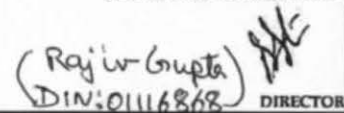 (Rajiv Gupta)
DIN:01116868) DIRECTOR